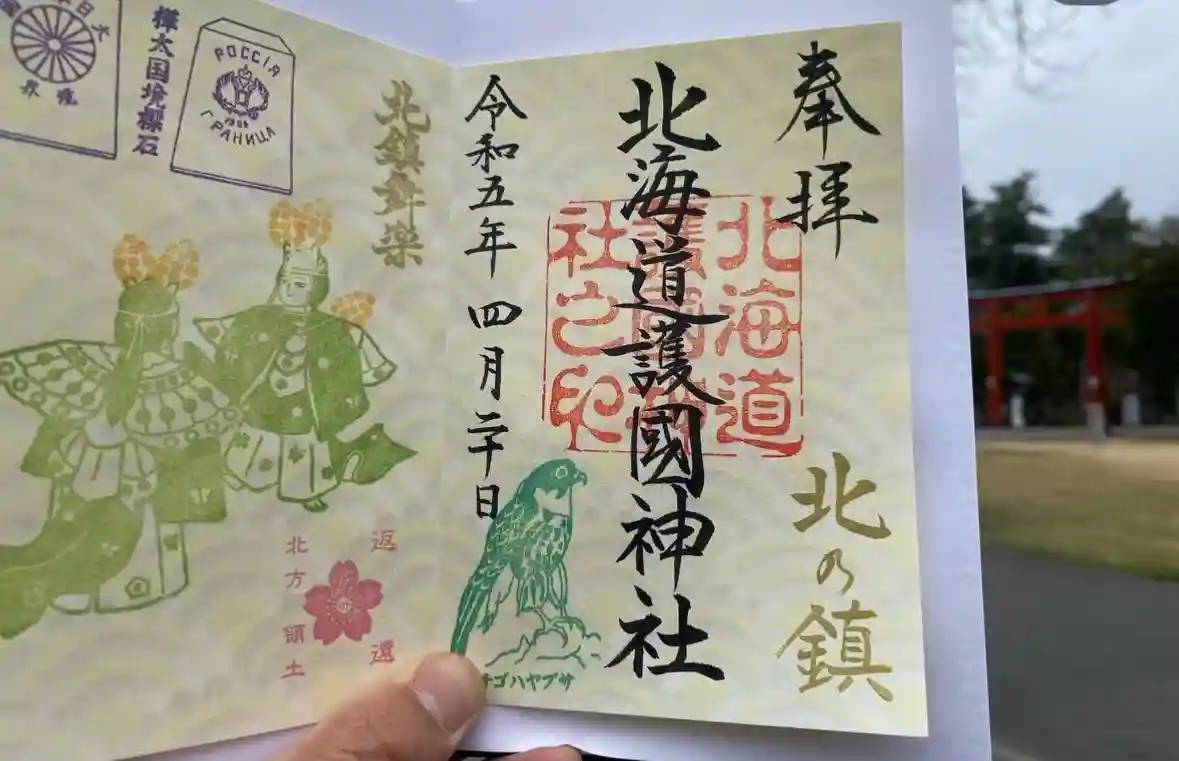 奉拝
北海道護國神社
北海道
護國神
社之印
北の鎮
令和五年 四月二十日
チゴハヤブサ
北鎮舞楽
返還
北方領土
樺太国境標石
РОССІЯ
1906
ГРАНИЦА
大日本帝國
境界